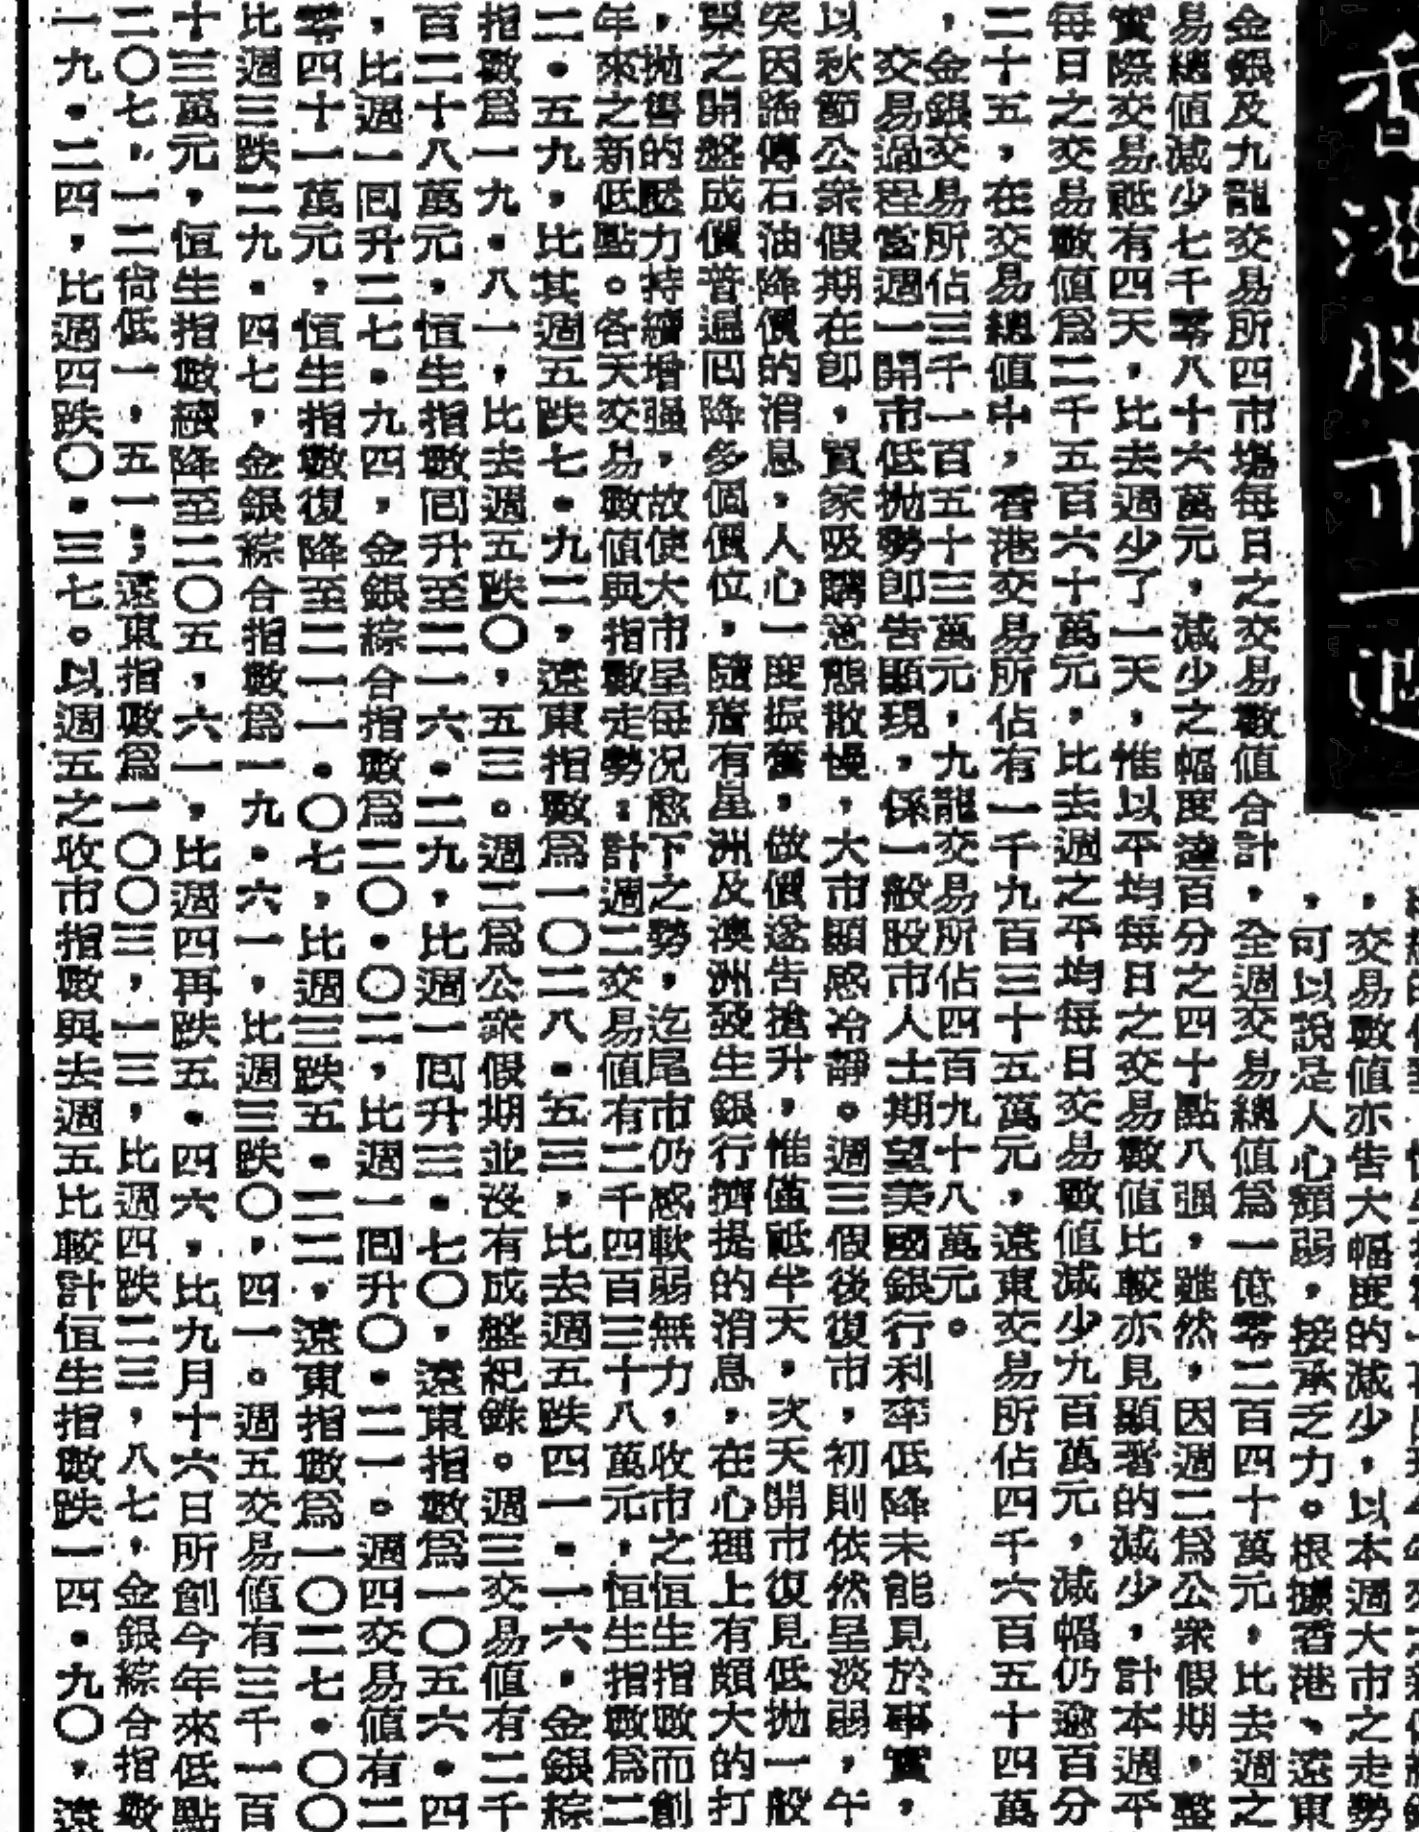 香港股市一週
，交易數值亦告大幅度的減少，以本週大市之走勢
，可以說是人心頹弱，接承乏力。根據香港、遠東
金銀及九龍交易所四市塲每日之交易數值合計，全週交易總值爲一億零二百四十萬元，比去週之
易總值減少七千零八十六萬元，減少之幅度達百分之四十點八强，雖然，因週二爲公衆假期，整
實際交易祗有四天，比去週少了一天，惟以平均每日之交易數值比較亦見顯著的減少，計本週平
每日之交易數值爲二千五百六十萬元，比去週之平均每日交易數值減少九百萬元，減幅仍逾百分
二十五，在交易總值中，香港交易所佔有一千九百三十五萬元，遠東交易所佔四千六百五十四萬
，金銀交易所佔三千一百五十三萬元，九龍交易所佔四百九十八萬元。
交易過程當週一開市低抛勢即告顯現，係一般股市人士期望美國銀行利率低降未能見於事實，
以秋節公衆假期在即，買家吸購意態散慢，大市顯感冷靜。週三假後復市，初則依然呈淡弱，午
突因謠傳石油降價的消息，人心一度振奮，做價遂告搶升，惟僅祗半天，次天開市復見低抛一般
票之開盤成價普遍囘降多個價位，隨着有星洲及澳洲發生銀行擠提的消息，在心理上有頗大的打
，抛售的壓力持續增强，故使大市呈每况愈下之勢，迄尾市仍感軟弱無力，收市之恒生指數而創
年來之新低點。各天交易數值與指數走勢：計週二交易值有二千四百三十八萬元，恒生指數爲二
二．五九，比其週五跌七．九二，遠東指數爲一〇二八．五三，比去週五跌四一．一六，金銀綜
指數爲一九．八一，比去週五跌〇，五三。週二爲公衆假期並沒有成盤紀錄。週三交易值有二千
百二十八萬元，恒生指數囘升至二一六．二九，比週一囘升三．七〇，遠東指數爲一〇五六．四
，比週一囘升二七．九四，金銀綜合指數爲二〇．〇二，比週一囘升〇．二一。週四交易值有二
零四十一萬元，恒生指數復降至二一一．〇七，比週三跌五．二二，遠東指數爲一〇二七．〇〇
比週三跌二九．四七，金銀綜合指數爲一九．六一，比週三跌〇，四一。週五交易值有三千一百
十三萬元，恒生指數續降至二〇五，六一，比週四再跌五．四六，比九月十六日所創今年來低點
二〇七，一二尙低一，五一；遠東指數爲一〇〇三，一三，比週四跌二三，八七，金銀綜合指數
一九．二四，比週四跌〇．三七。以週五之收市指數與去週五比較計恒生指數跌一四．九〇，遠